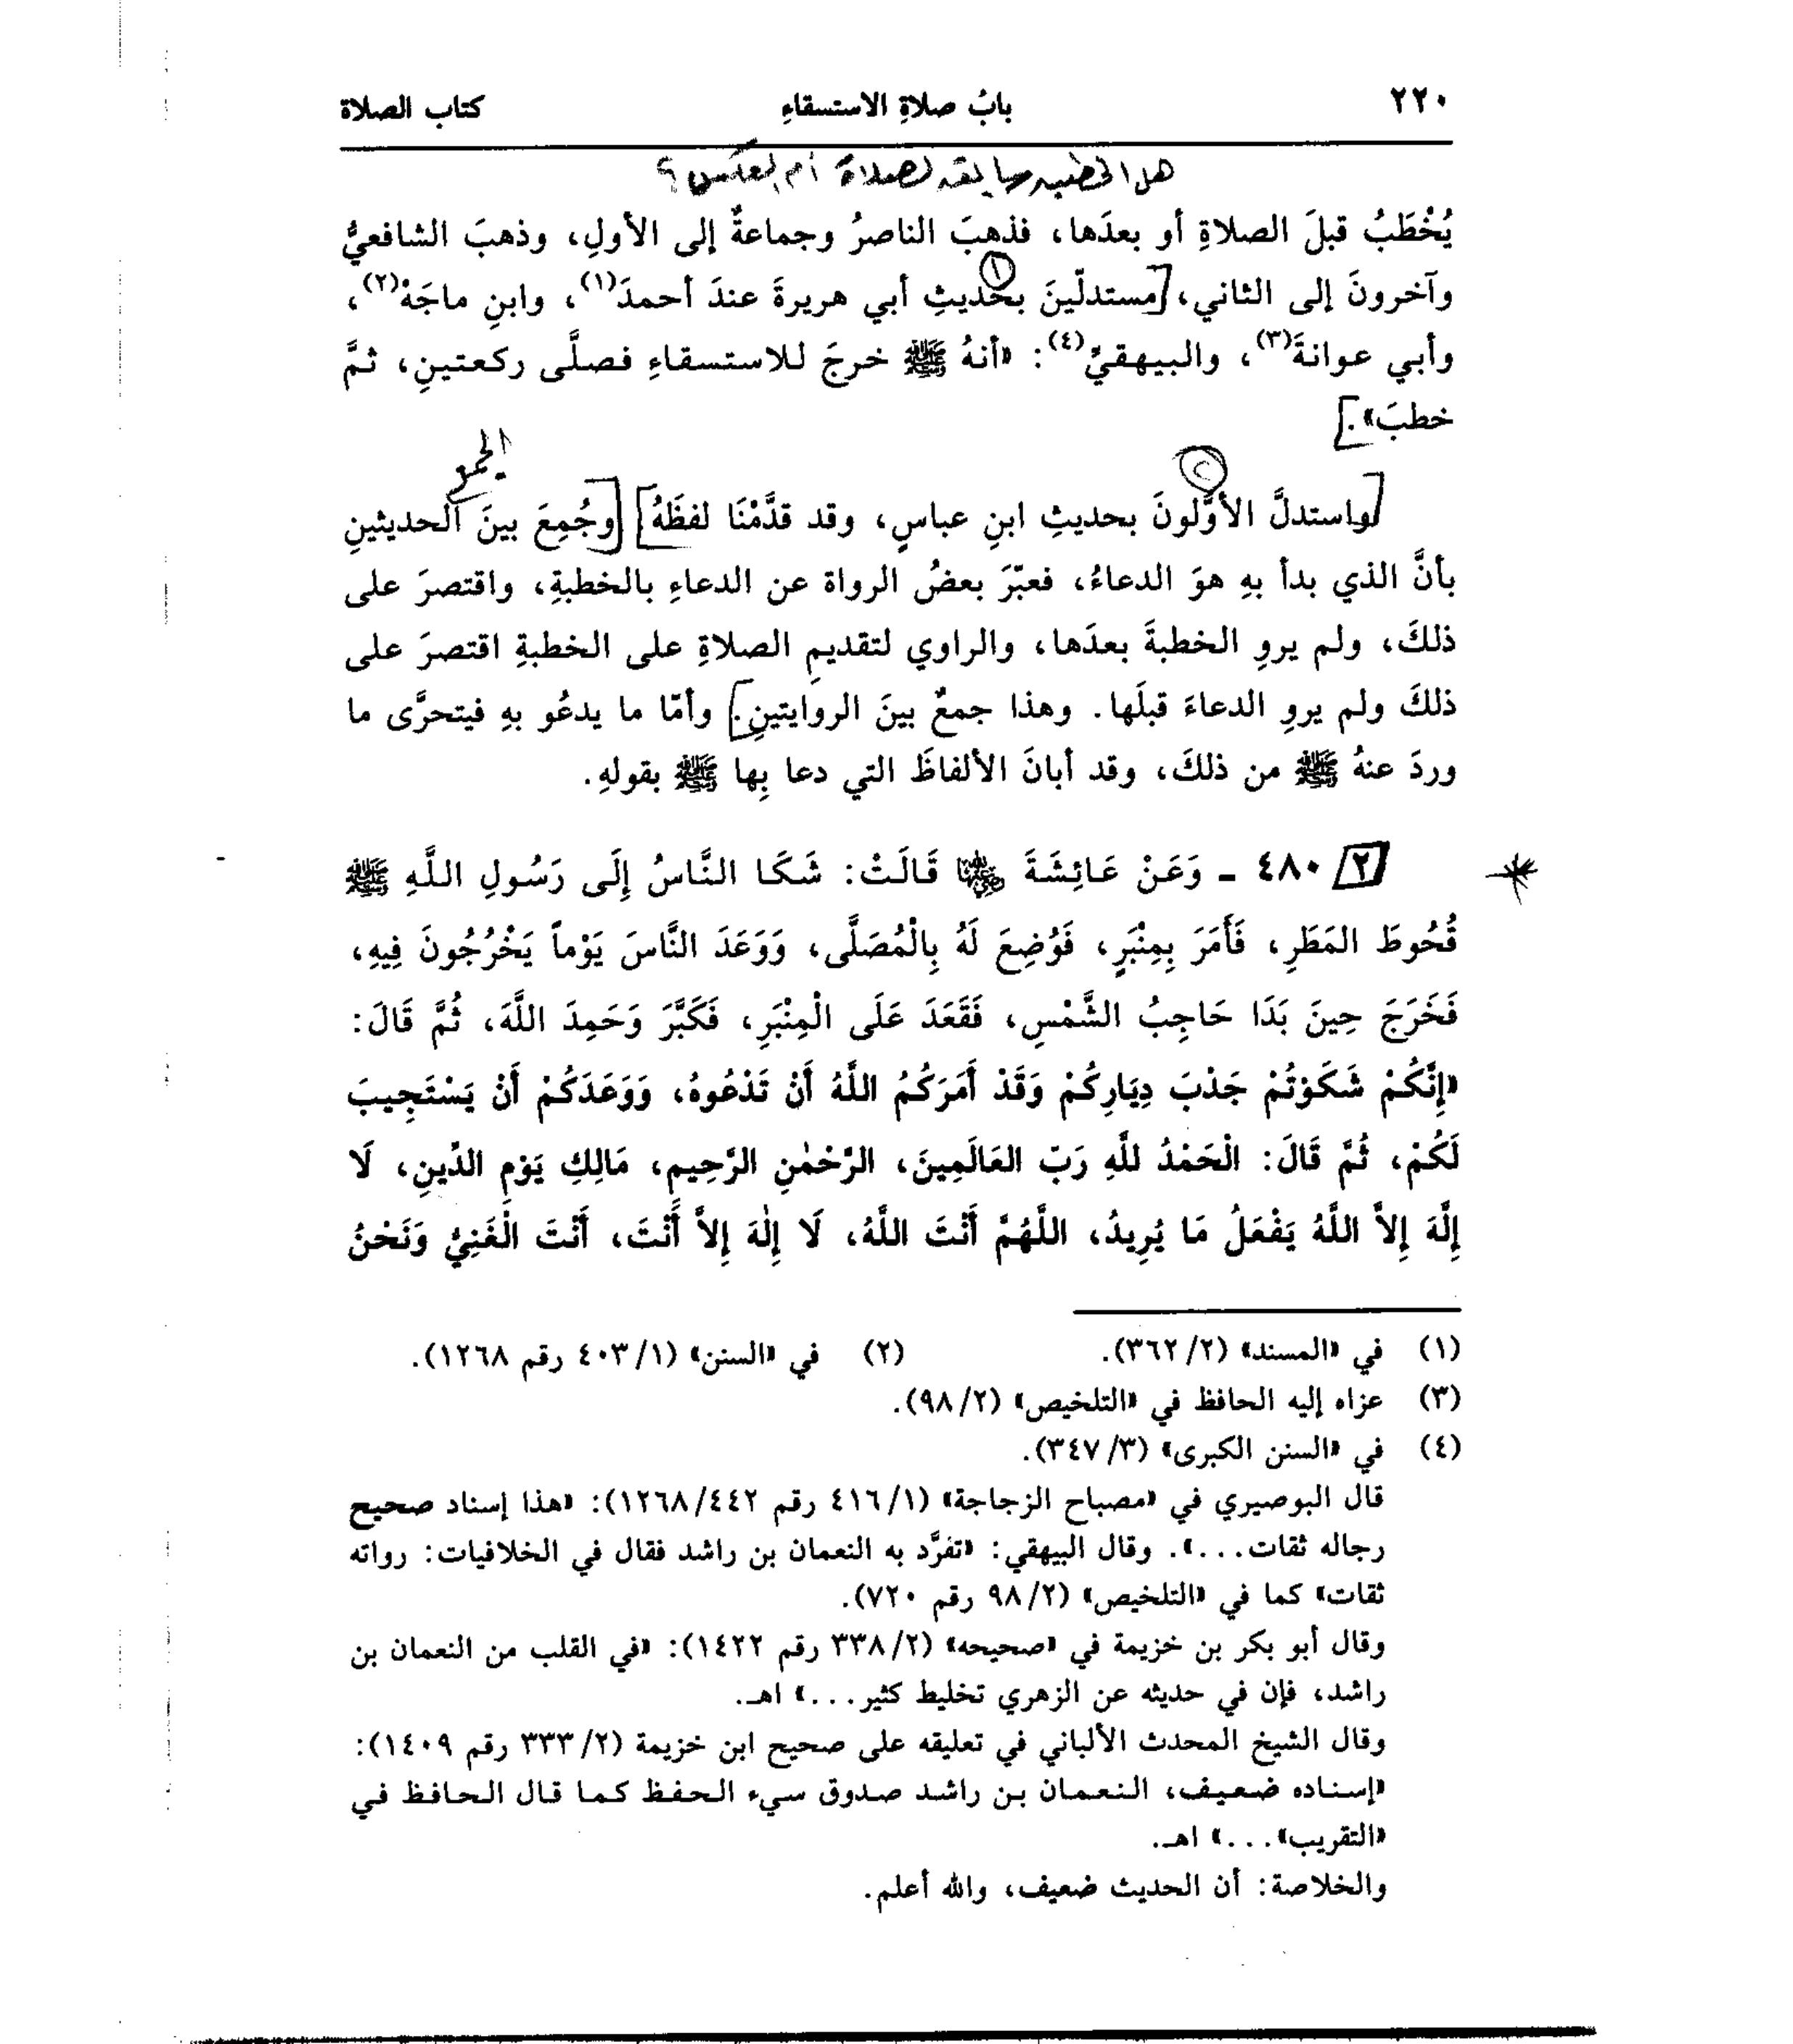 ٢٢٠ بابُ صلاةِ الاستسقاءِ كتاب الصلاة
هل الخطبه سابقه لصلاة أم العكس؟
يُخْطَبُ قبلَ الصلاةِ أو بعدَها، فذهبَ الناصرُ وجماعةٌ إلى الأولِ، وذهبَ الشافعيُّ
وآخرونَ إلى الثاني، [مستدلّينَ بحديثِ أبي هريرةَ عندَ أحمدَ(١)، وابنِ ماجَهْ(٢)،
وأبي عوانةَ(٣)، والبيهقيِّ(٤): «أنهُ ﷺ خرجَ للاستسقاءِ فصلَّى ركعتينِ، ثمَّ
خطبَ».]
الجمع
[واستدلَّ الأوَّلونَ بحديثِ ابنِ عباسٍ، وقد قدَّمْنَا لفظَهُ] [وجُمِعَ بينَ الحديثينِ
بأنَّ الذي بدأ بهِ هوَ الدعاءُ، فعبّرَ بعضُ الرواة عن الدعاءِ بالخطبةِ، واقتصرَ على
ذلكَ، ولم يروِ الخطبةَ بعدَها، والراوي لتقديمِ الصلاةِ على الخطبةِ اقتصرَ على
ذلكَ ولم يروِ الدعاءَ قبلَها. وهذا جمعٌ بينَ الروايتينِ.] وأمّا ما يدعُو بهِ فيتحرَّى ما
وردَ عنهُ ﷺ من ذلكَ، وقد أبانَ الألفاظَ التي دعا بِها ﷺ بقولهِ.
٢/ ٤٨٠ - وَعَنْ عَائِشَةَ رضي الله عنها قَالَتْ: شَكَا النَّاسُ إِلَى رَسُولِ اللَّهِ ﷺ
قُحُوطَ المَطَرِ، فَأَمَرَ بِمِنْبَرٍ، فَوُضِعَ لَهُ بِالْمُصَلَّى، وَوَعَدَ النَّاسَ يَوْماً يَخْرُجُونَ فِيهِ،
فَخَرَجَ حِينَ بَدَا حَاجِبُ الشَّمْسِ، فَقَعَدَ عَلَى الْمِنْبَرِ، فَكَبَّرَ وَحَمِدَ اللَّهَ، ثُمَّ قَالَ:
«إِنَّكُمْ شَكَوْتُمْ جَدْبَ دِيَارِكُمْ وَقَدْ أَمَرَكُمُ اللَّهُ أَنْ تَدْعُوهُ، وَوَعَدَكُمْ أَنْ يَسْتَجِيبَ
لَكُمْ، ثُمَّ قَالَ: الْحَمْدُ للَّهِ رَبّ العَالَمِينَ، الرَّحْمٰنِ الرَّحِيمِ، مَالِكِ يَوْمِ الدِّينِ، لَا
إِلَّهَ إِلاَّ اللَّهُ يَفْعَلُ مَا يُرِيدُ، اللَّهُمَّ أَنْتَ اللَّهُ، لَا إِلٰهَ إِلاَّ أَنْتَ، أَنْتَ الْغَنِيُّ وَنَحْنُ
(١) في «المسند» (٢/ ٣٦٢). (٢) في «السنن» (١/ ٤٠٣ رقم ١٢٦٨).
(٣) عزاه إليه الحافظ في «التلخيص» (٢/ ٩٨).
(٤) في «السنن الكبرى» (٣/ ٣٤٧).
قال البوصيري في «مصباح الزجاجة» (١/ ٤١٦ رقم ٤٤٢/ ١٢٦٨): «هذا إسناد صحيح
رجاله ثقات...». وقال البيهقي: «تفرَّد به النعمان بن راشد فقال في الخلافيات: رواته
ثقات» كما في «التلخيص» (٢/ ٩٨ رقم ٧٢٠).
وقال أبو بكر بن خزيمة في «صحيحه» (٢/ ٣٣٨ رقم ١٤٢٢): «في القلب من النعمان بن
راشد، فإن في حديثه عن الزهري تخليط كثير...» اهـ.
وقال الشيخ المحدث الألباني في تعليقه على صحيح ابن خزيمة (٢/ ٣٣٣ رقم ١٤٠٩):
«إسناده ضعيف، النعمان بن راشد صدوق سيء الحفظ كما قال الحافظ في
«التقريب»...» اهـ.
والخلاصة: أن الحديث ضعيف، والله أعلم.